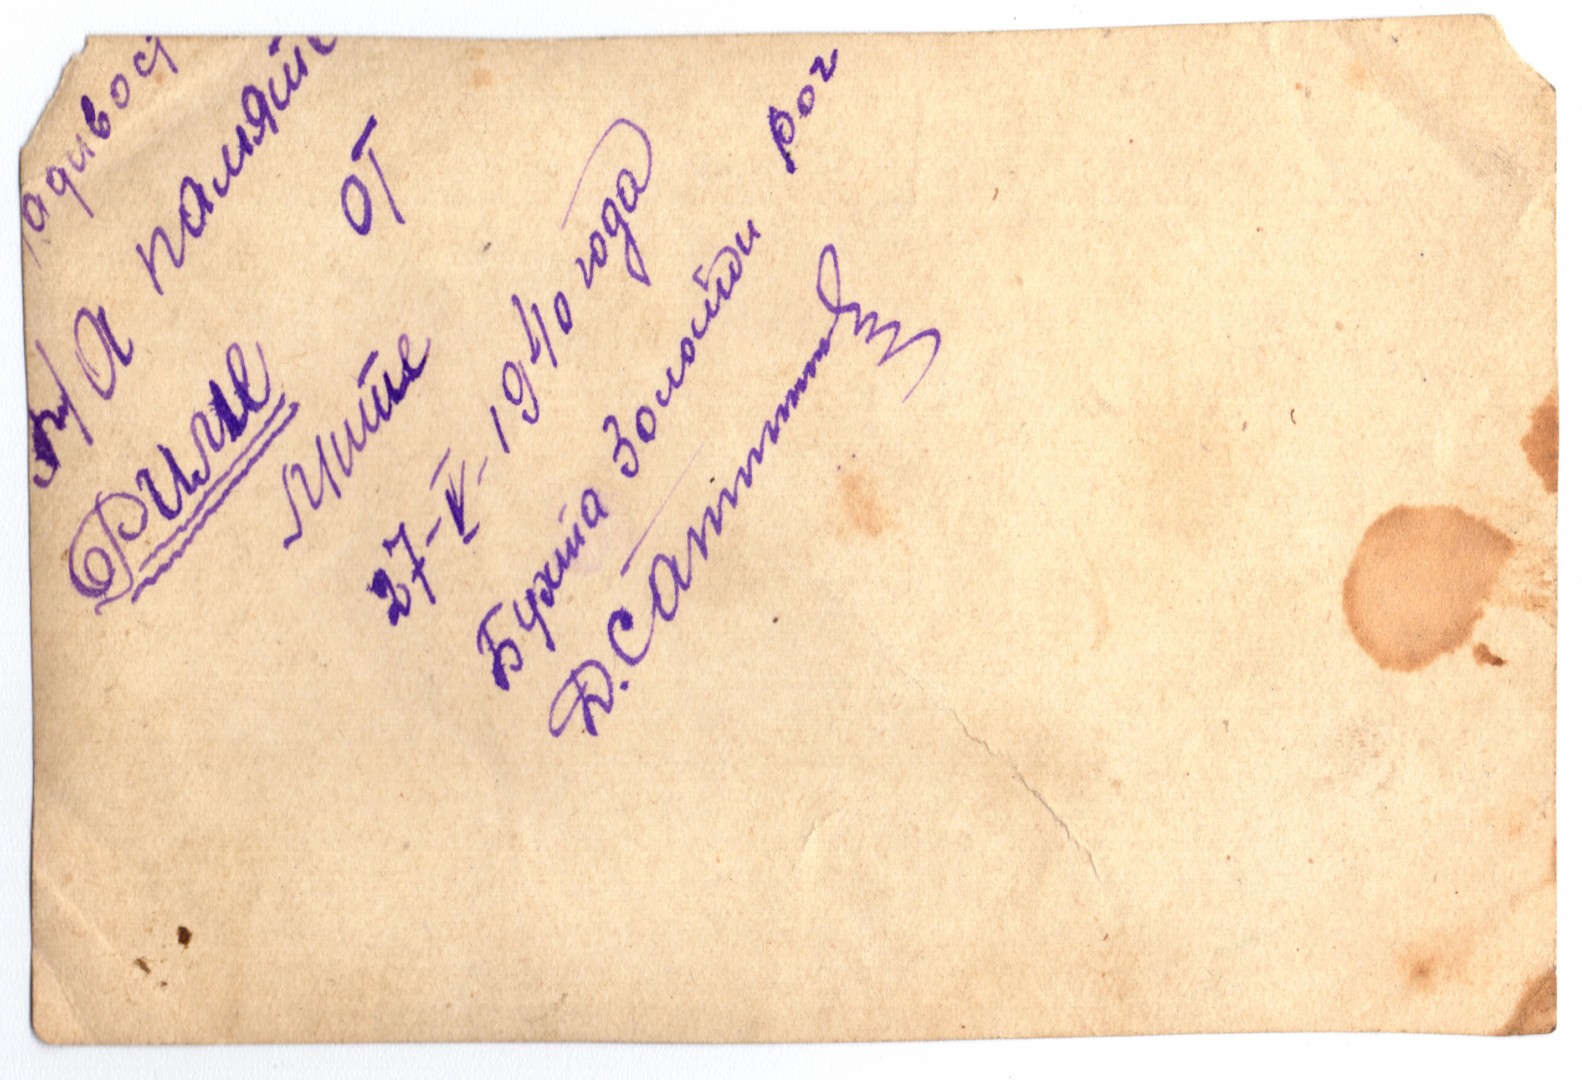 адивост
На память
Риме от
Мити
27-V-1940 года
Бухта Золотои рог